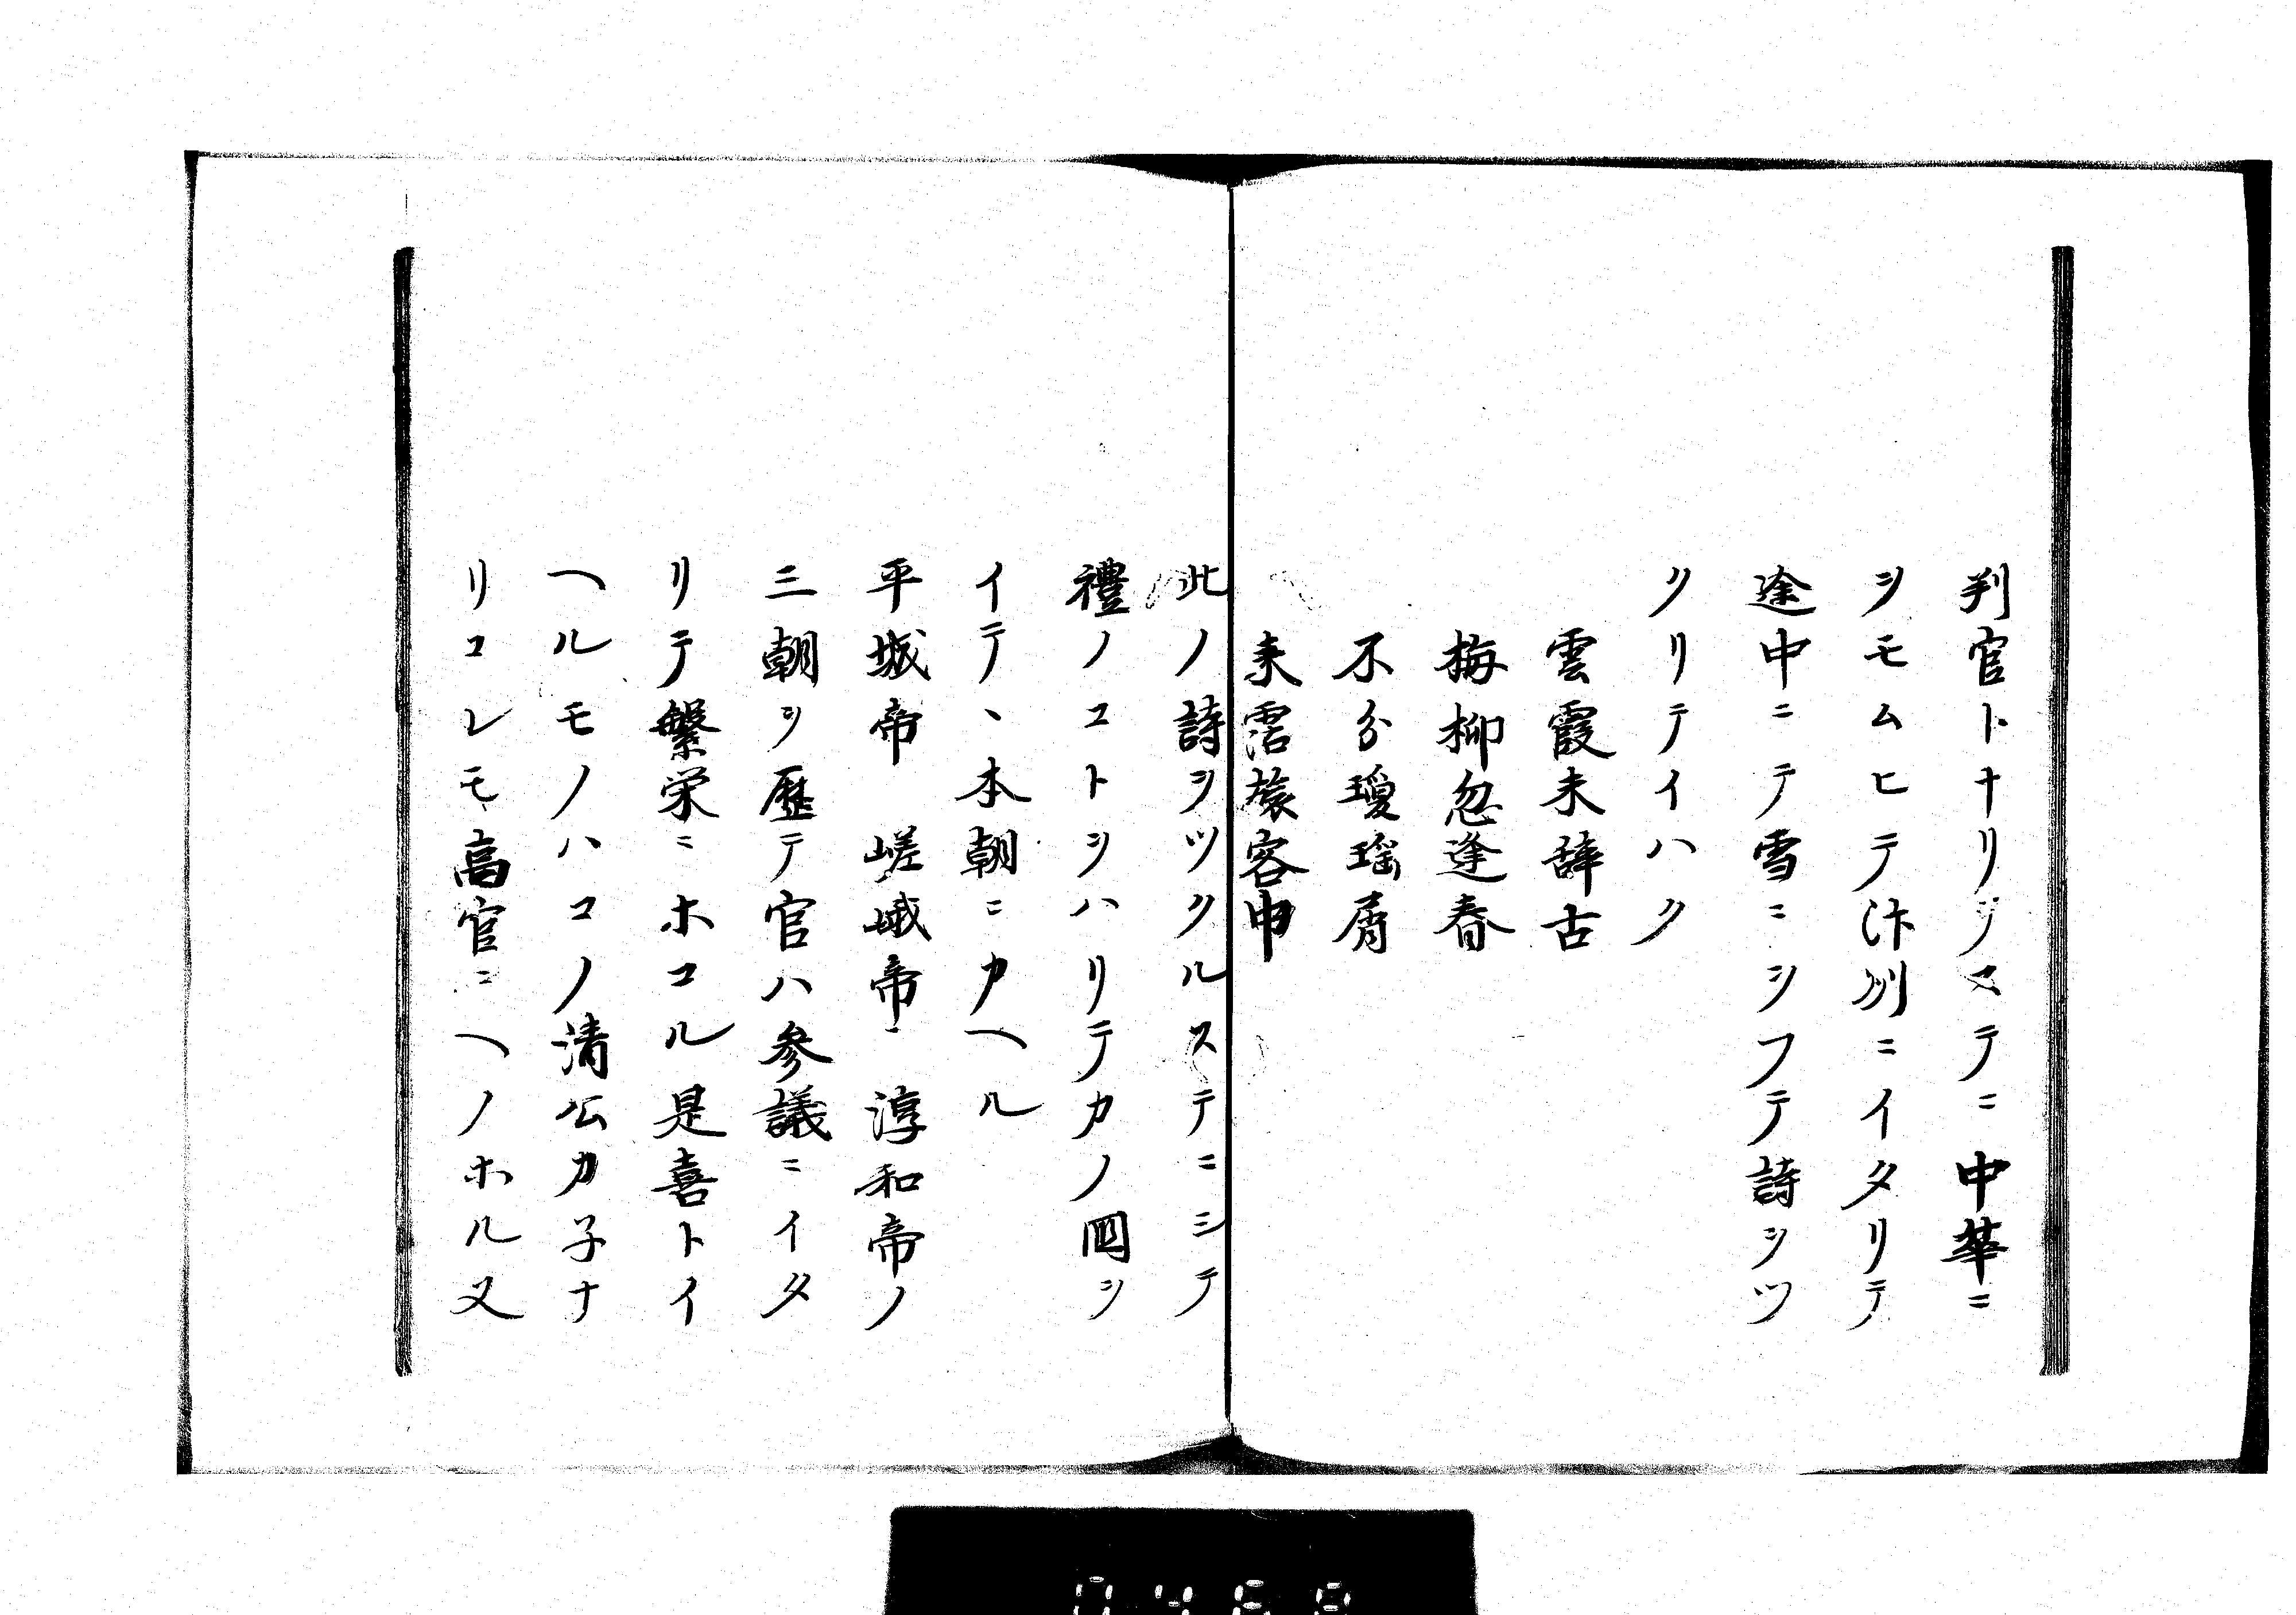 判官トナリヌステニ中華ニ
ヲモムヒテ汴州ニイタリテ
途中ニテ雪ニシフテ詩ヲツ
クリテイハク
雲霞未辞古
梅柳忽逢春
不分瓊瑶屑
来霑旅客巾
此ノ詩ヲツクルステニシテ
禮ノコトヲハリテカノ國ヲ
イテヽ本朝ニカヘル
平城帝 嵯峨帝 淳和帝ノ
三朝ヲ歴テ官ハ参議ニイタ
リテ繁栄ニホコル是善トイ
ヘルモノハコノ清公カ子ナ
リコレモ高官ニヘノホル又